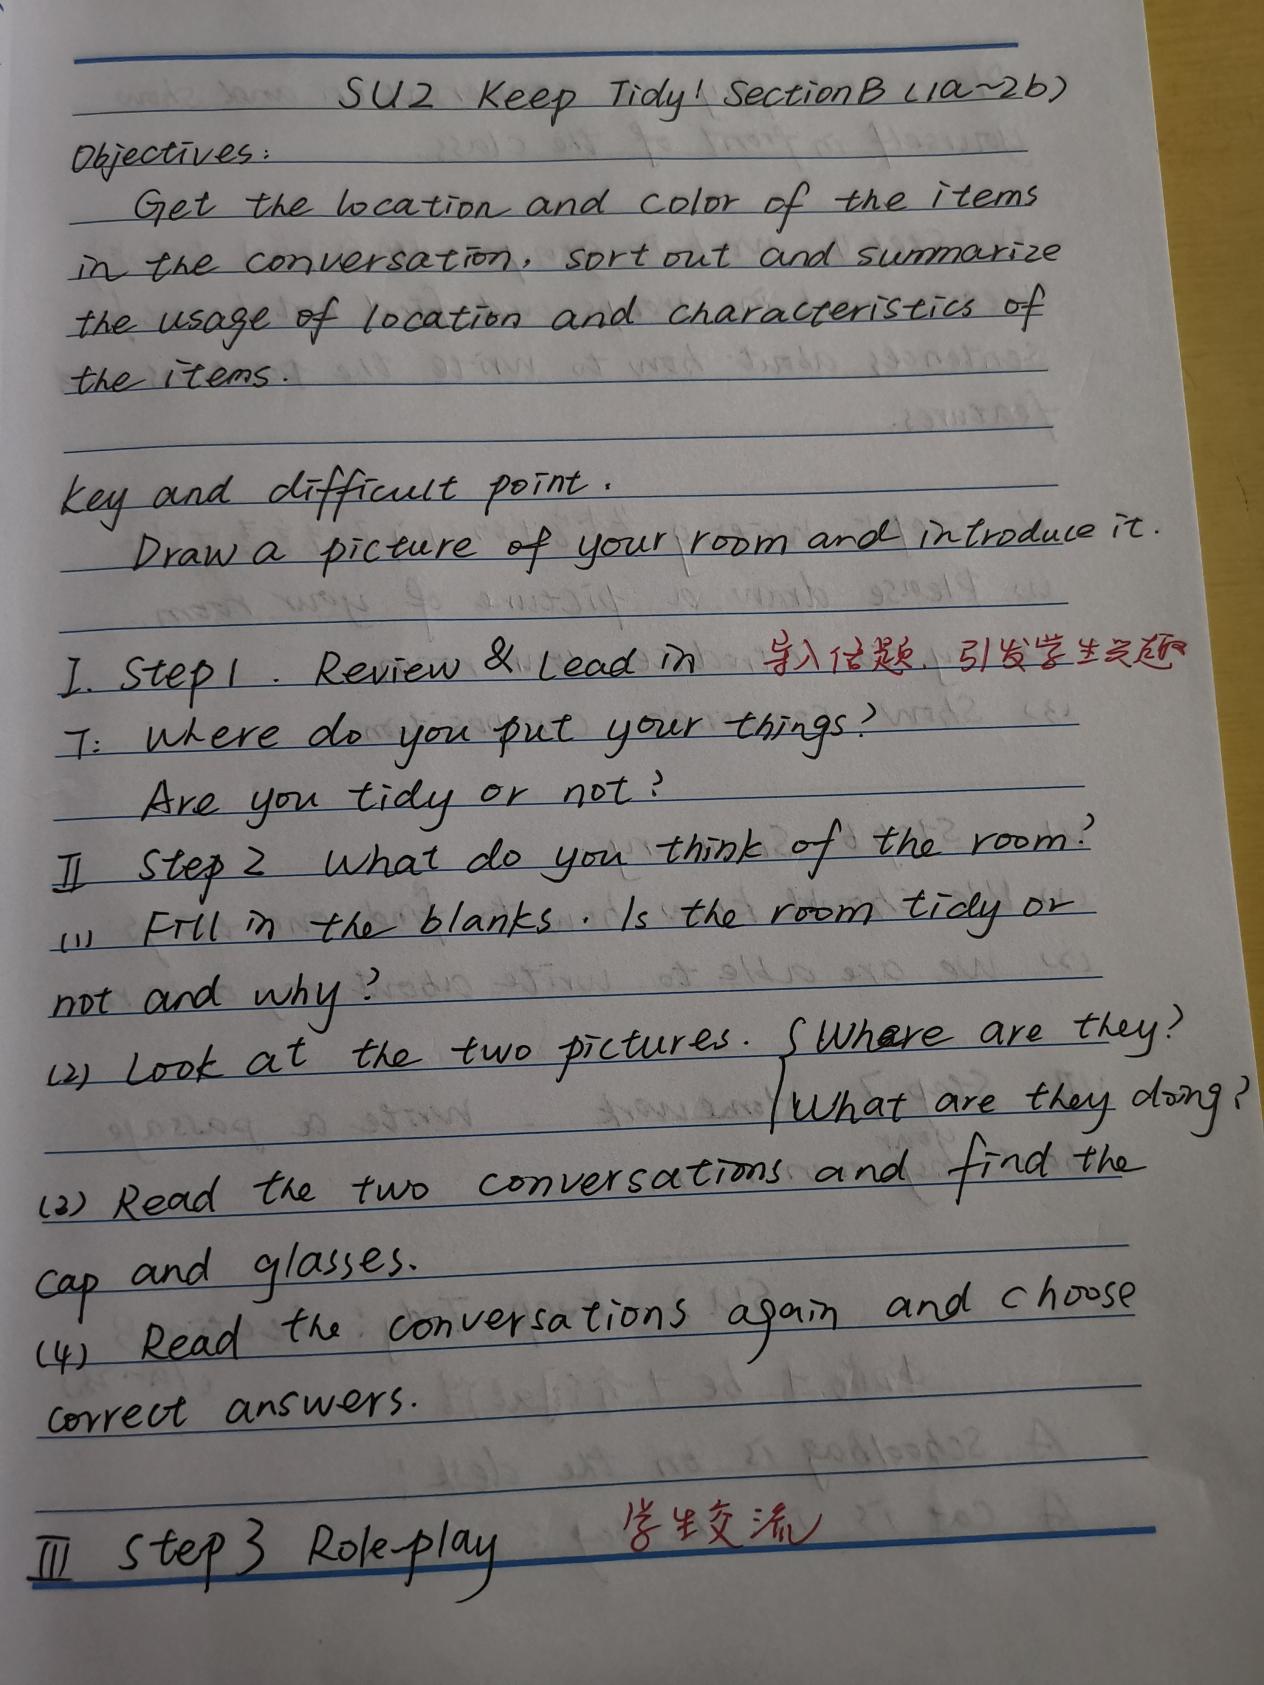 SU2 Keep Tidy! Section B (1a~2b)
Objectives:
Get the location and color of the items
in the conversation, sort out and summarize
the usage of location and characteristics of
the items.
Key and difficult point.
Draw a picture of your room and introduce it.
I. Step 1. Review & Lead in 导入话题、引发学生兴趣
T: Where do you put your things?
Are you tidy or not?
II Step 2 What do you think of the room?
(1) Fill in the blanks. Is the room tidy or
not and why?
(2) Look at the two pictures. { Where are they?
What are they doing?
(3) Read the two conversations and find the
cap and glasses.
(4) Read the conversations again and choose
correct answers.
III Step 3 Role-play 学生交流